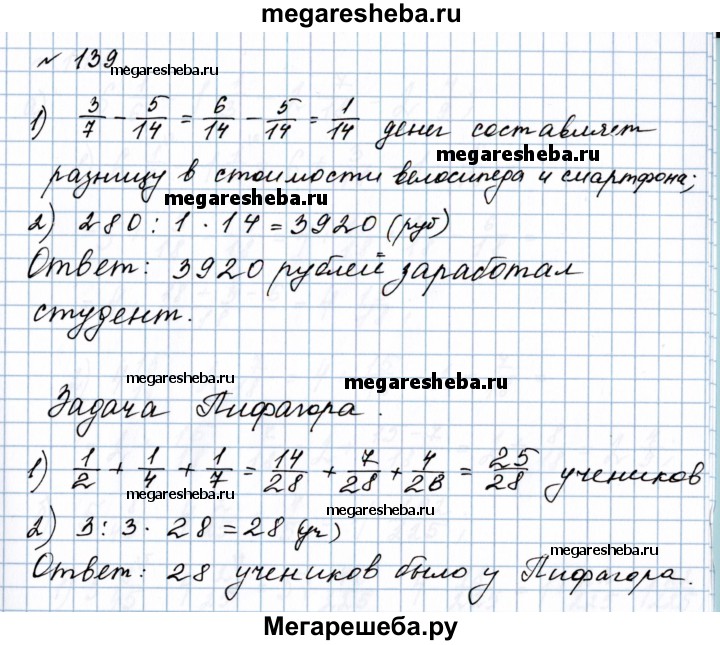 megaresheba.ru
№ 139
megaresheba.ru
1) 3/7 − 5/14 = 6/14 − 5/14 = 1/14 денег составляет
megaresheba.ru
разницу в стоимости велосипеда и смартфона;
megaresheba.ru
2) 280 : 1 · 14 = 3920 (руб)
Ответ: 3920 рублей заработал
студент.
megaresheba.ru
megaresheba.ru
Задача Пифагора.
1) 1/2 + 1/4 + 1/7 = 14/28 + 7/28 + 4/28 = 25/28 учеников
megaresheba.ru
2) 3 : 3 · 28 = 28 (уч)
megaresheba.ru
Ответ: 28 учеников было у Пифагора.
Мегарешеба.ру